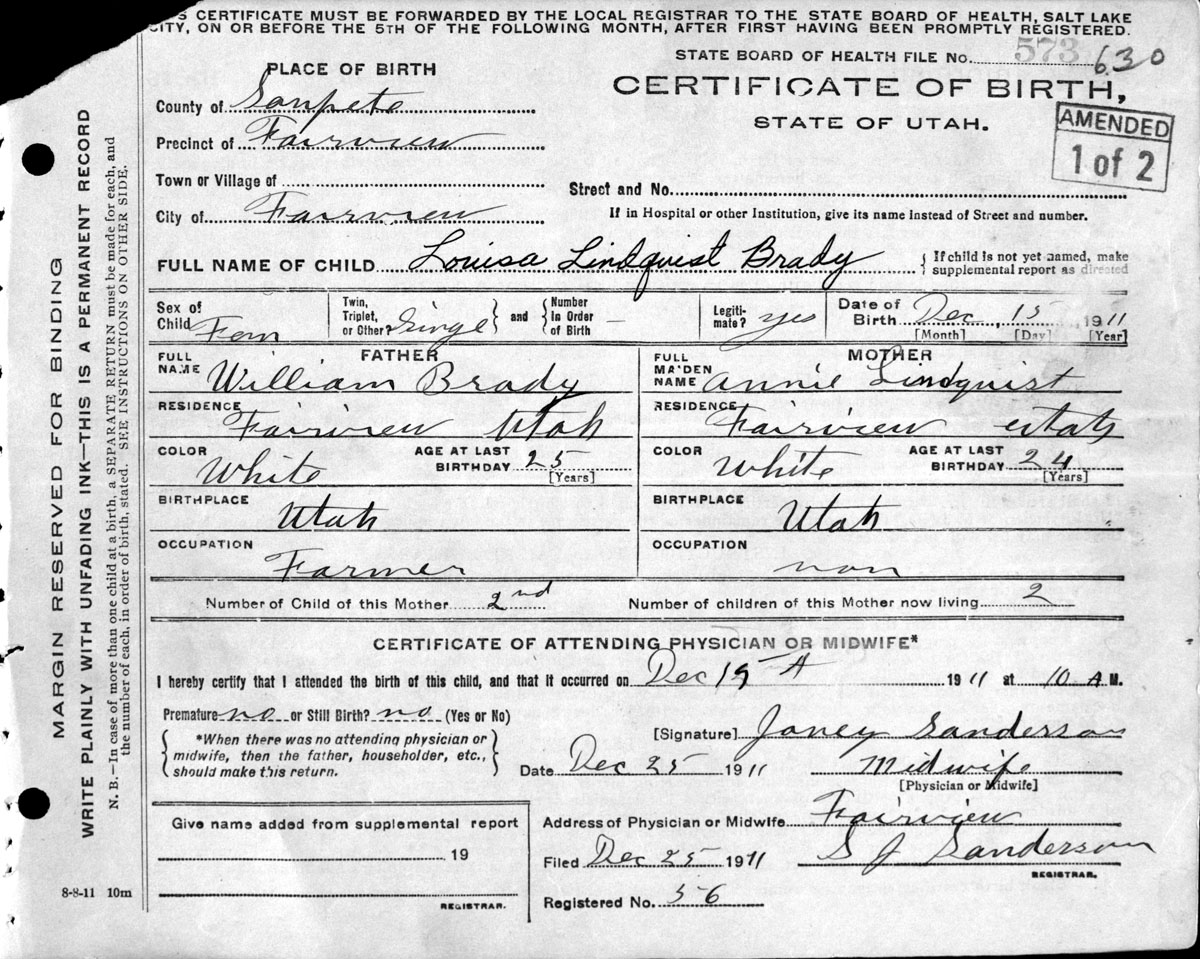 S CERTIFICATE MUST BE FORWARDED BY THE LOCAL REGISTRAR TO THE STATE BOARD OF HEALTH, SALT LAKE
CITY, ON OR BEFORE THE 5TH OF THE FOLLOWING MONTH, AFTER FIRST HAVING BEEN PROMPTLY REGISTERED.
STATE BOARD OF HEALTH FILE No. 573 630
PLACE OF BIRTH
CERTIFICATE OF BIRTH,
STATE OF UTAH.
AMENDED
1 of 2
County of Sanpete
Precinct of Fairview
Town or Village of
Street and No.
City of Fairview
If in Hospital or other Institution, give its name instead of Street and number.
FULL NAME OF CHILD Louisa Lindquist Brady
{If child is not yet named, make
supplemental report as directed
Sex of
Child Fem
Twin,
Triplet,
or Other? Singel
} and {
Number
In Order
of Birth –
Legiti-
mate? yes
Date of
Birth Dec 15 1911
[Month] [Day] [Year]
FATHER
FULL
NAME William Brady
RESIDENCE
Fairview Utah
COLOR White
AGE AT LAST
BIRTHDAY 25
[Years]
BIRTHPLACE
Utah
OCCUPATION
Farmer
MOTHER
FULL
MAIDEN
NAME Annie Lindquist
RESIDENCE
Fairview Utah
COLOR White
AGE AT LAST
BIRTHDAY 24
[Years]
BIRTHPLACE
Utah
OCCUPATION
non
Number of Child of this Mother 2nd
Number of children of this Mother now living 2
CERTIFICATE OF ATTENDING PHYSICIAN OR MIDWIFE*
I hereby certify that I attended the birth of this child, and that it occurred on Dec 15 1911 at 10 A M.
Premature no or Still Birth? no (Yes or No)
{*When there was no attending physician or
midwife, then the father, householder, etc.,
should make this return.}
[Signature] Janey Sanderson
Date Dec 25 1911
Midwife
[Physician or Midwife]
Give name added from supplemental report
19
REGISTRAR.
Address of Physician or Midwife Fairview
Filed Dec 25 1911
S J Sanderson
REGISTRAR.
Registered No. 56
8-8-11 10m
MARGIN RESERVED FOR BINDING
WRITE PLAINLY WITH UNFADING INK—THIS IS A PERMANENT RECORD
N. B.—In case of more than one child at a birth, a SEPARATE RETURN must be made for each, and
the number of each, in order of birth, stated. SEE INSTRUCTIONS ON OTHER SIDE.